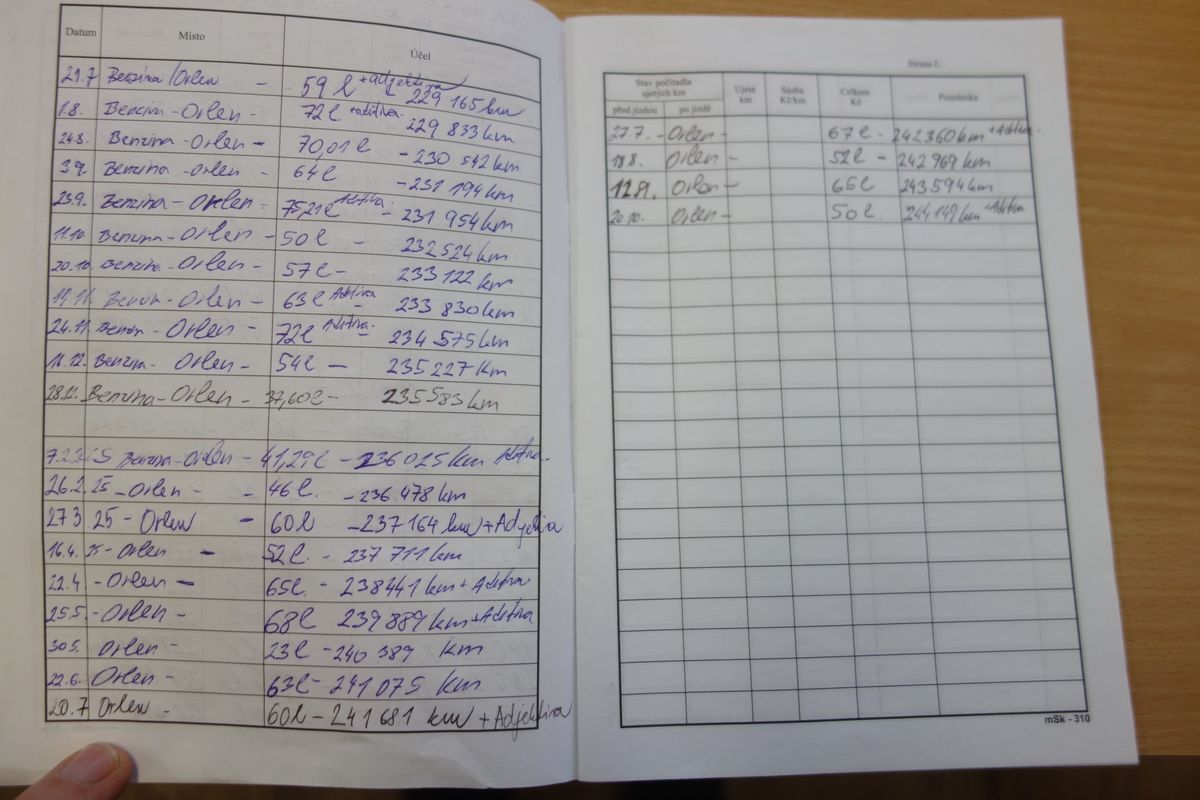 Datum Místo Účel
29.7 Benzina/Orlen - 59 l + adjektiva 229 165 km
1.8. Benzina-Orlen - 72 l + aditiva 229 833 km
24.8. Benzina-Orlen - 70,01 l - 230 542 km
3.9. Benzina-Orlen - 64 l - 231 194 km
23.9. Benzina-Orlen - 75,21 l Aditiva - 231 954 km
11.10 Benzina-Orlen - 50 l - 232 524 km
20.10 Benzina-Orlen - 57 l - 233 122 km
Benzin-Orlen - 63 l Aditiva - 233 830 km
24.11. Benzin-Orlen - 72 l Aditiva - 234 575 km
Benzin-Orlen - 54 l - 235 227 km
28.12. Benzina-Orlen - 37,60 l - 235 583 km
25 Benzina-Orlen - 41,29 l - 236 025 km Aditiva-
26.2. 25 - Orlen - - 46 l. - 236 478 km
27 3 25 - Orlen - 60 l - 237 164 km + Adjektiva
16.4. 25 - Orlen - 52 l. - 237 711 km
22.4 - Orlen - 65 l - 238441 km + Aditiva
25.5. - Orlen - 68 l 239 889 km + Aditiva
30.5. Orlen - 23 l - 240 389 km
22.6. Orlen - 63 l - 241 075 km
20.7 Orlen - 60 l - 241 681 km + Adjektiva
Strana č.:
Stav počítadla ujetých km Ujeté km Sazba Kč/km Celkem Kč Poznámka
před jízdou po jízdě
27.7. - Orlen - 67 l - 242 360 km + Aditiva.
18 8. Orlen - 52 l - 242 969 km
Orlen - 65 l 243 594 km
20.10. Orlen - 50 l. 244 149 km + Aditiva
mSk - 310